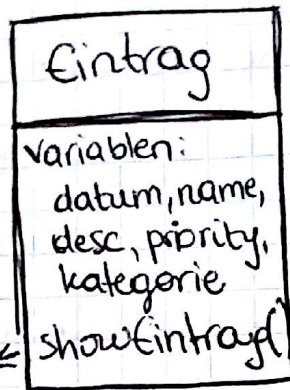 Eintrag
variablen:
datum, name,
desc, priority,
kategorie
showEintrag()